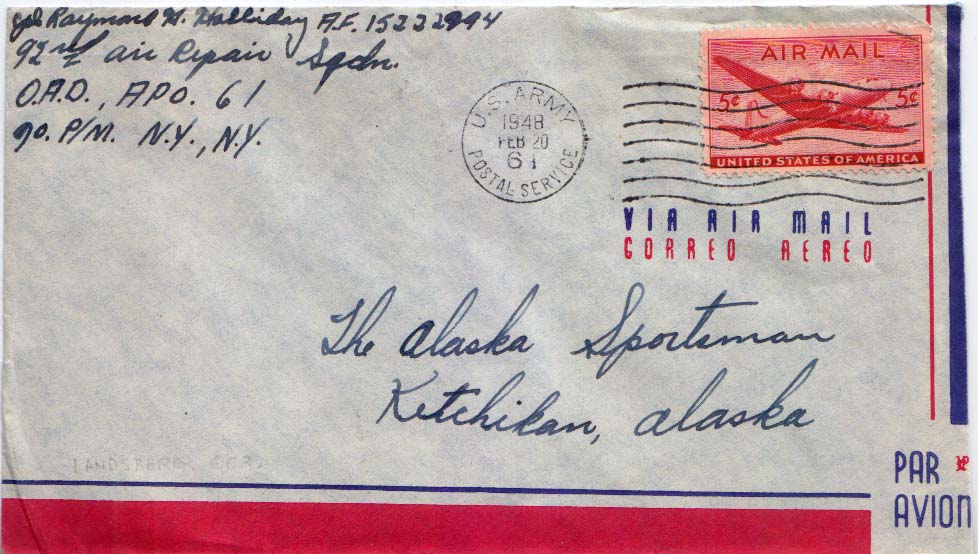 Raymond H. Halliday A.F. 15222994
92nd Air Repair Sqdn.
O.A.D., APO. 61
℅ P/M. N.Y., N.Y.
U.S. ARMY
1948
FEB 20
61
POSTAL SERVICE
AIR MAIL
5¢ 5¢
UNITED STATES OF AMERICA
VIA AIR MAIL
CORREO AEREO
The Alaska Sportsman
Ketchikan, Alaska
LANDSBERG
PAR
AVION